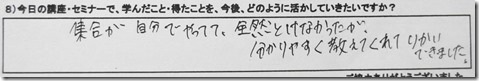 8)今日の講座・セミナーで、学んだこと・得たことを、今後、どのように活かしていきたいですか？
集合が自分でやってて、全然とけなかったが、
分かりやすく教えてくれてりかい
できました。